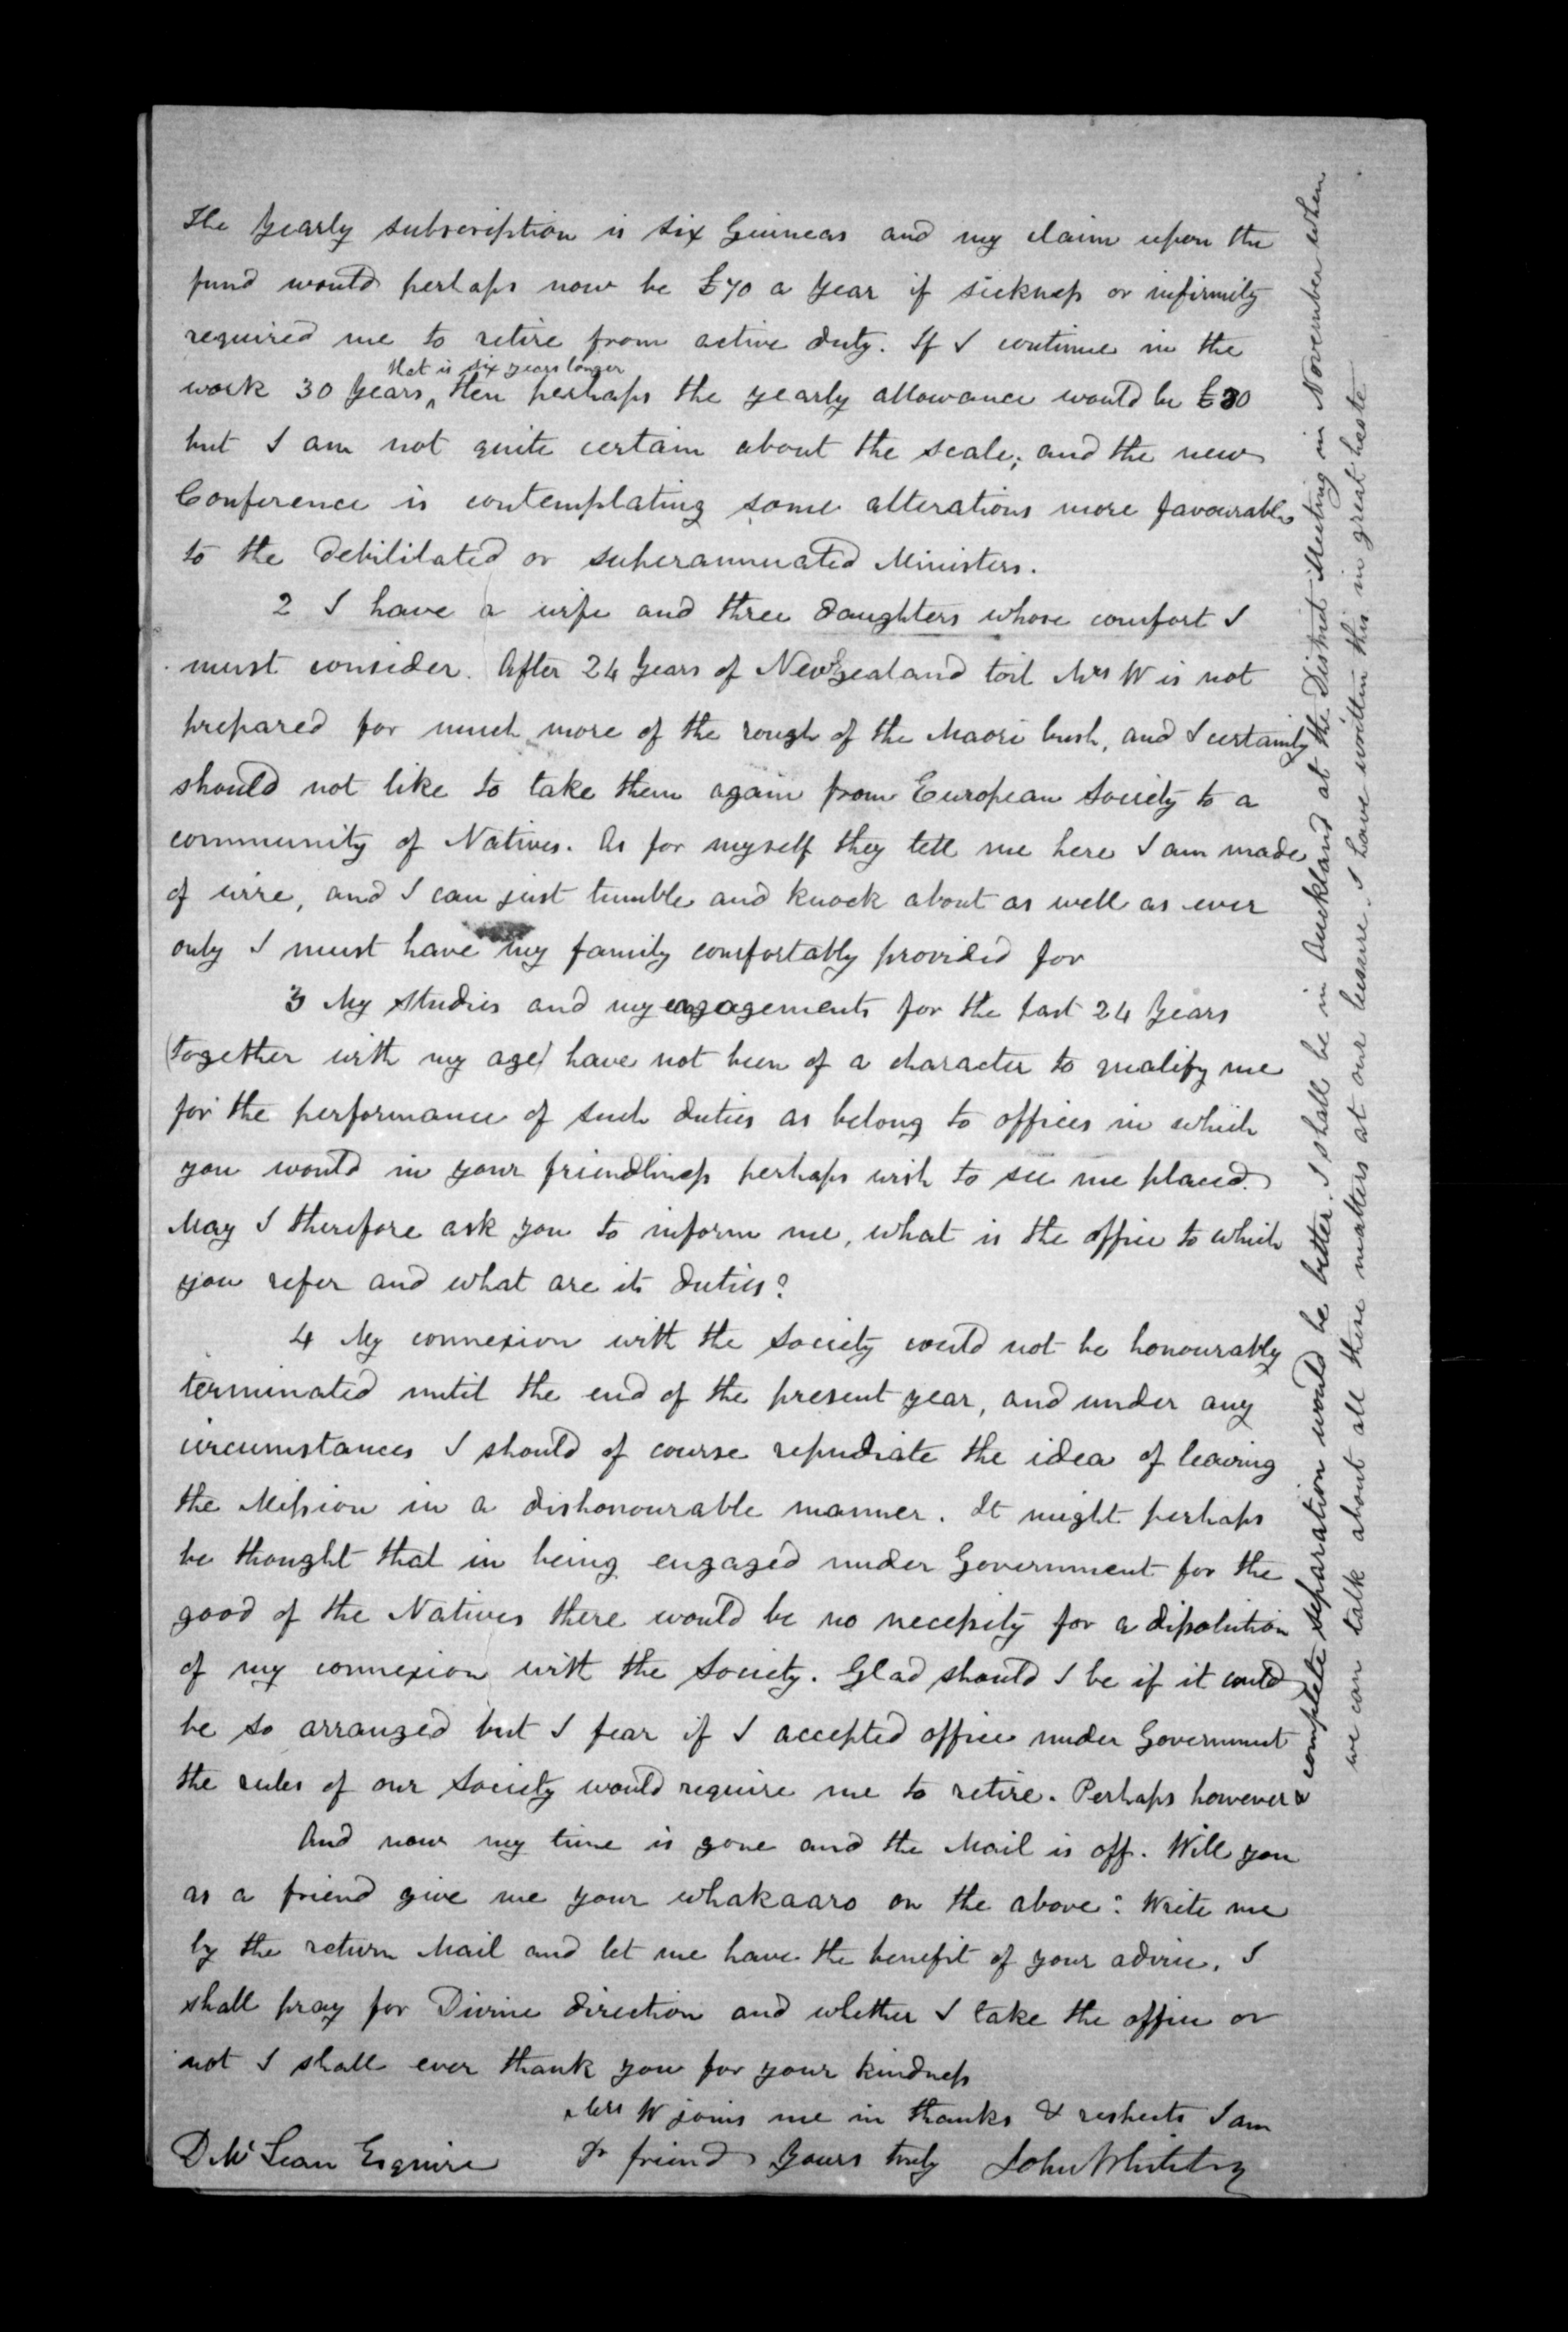 The Yearly subscription is six Guineas and my claim upon the
fund would perhaps now be £70 a Year if sickness or infirmity
required me to retire from active duty. If I continue in the
that is six years longer
work 30 Years, then perhaps the yearly allowance would be
but I am not quite certain about the scale; and the new
Conference is contemplating some alterations more favourable
to the debilitated or superannuated Ministers.
2 I have a wife and three daughters whose comfort I
must consider. After 24 Years of New Zealand toil Mrs W is not
prepared for much more of the rough of the Maori bush, and I certainly
should not like to take them again from European Society to a
community of Natives. As for myself they tell me here I am made
of wire, and I can just tumble and knock about as well as ever
only I must have my family comfortably provided for
3 My studies and my engagements for the last 24 Years
(together with my age) have not been of a character to qualify me
for the performance of such duties as belong to offices in which
you would in your friendliness perhaps wish to see me placed.
May I therefore ask you to inform me, what is the office to which
you refer and what are its duties?
4 My connexion with the Society could not be honourably
terminated until the end of the present year, and under any
circumstances I should of course repudiate the idea of leaving
the Mission in a dishonourable manner. It might perhaps
be thought that in being engaged under Government for the
good of the Natives there would be no necessity for a dissolution
of my connexion with the Society. Glad should I be if it could
be so arranged but I fear if I accepted office under Government
the rules of our Society would require me to retire. Perhaps however a
complete separation would be better. I shall be in Auckland at the District Meeting in November when
we can talk about all these matters at our leisure. I have written this in great haste
And now my time is gone and the Mail is off. Will you
as a friend give me your whakaaro on the above: Write me
by the return Mail and let me have the benefit of your advice. I
shall pray for Divine direction and whether I take the office or
not I shall ever thank you for your kindness
Mrs W joins me in thanks & respects I am
D McLean Esquire Dr friend Yours truly John Whiteley